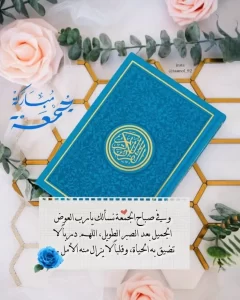 جمعة
مباركة
القرآن الكريم
وفي صباح الجمعة نسألك يا رب العوض
الجميل بعد الصبر الطويل، اللهم دربًا لا
تضيق به الحياة، وقلبًا لا يزال منه الأمل